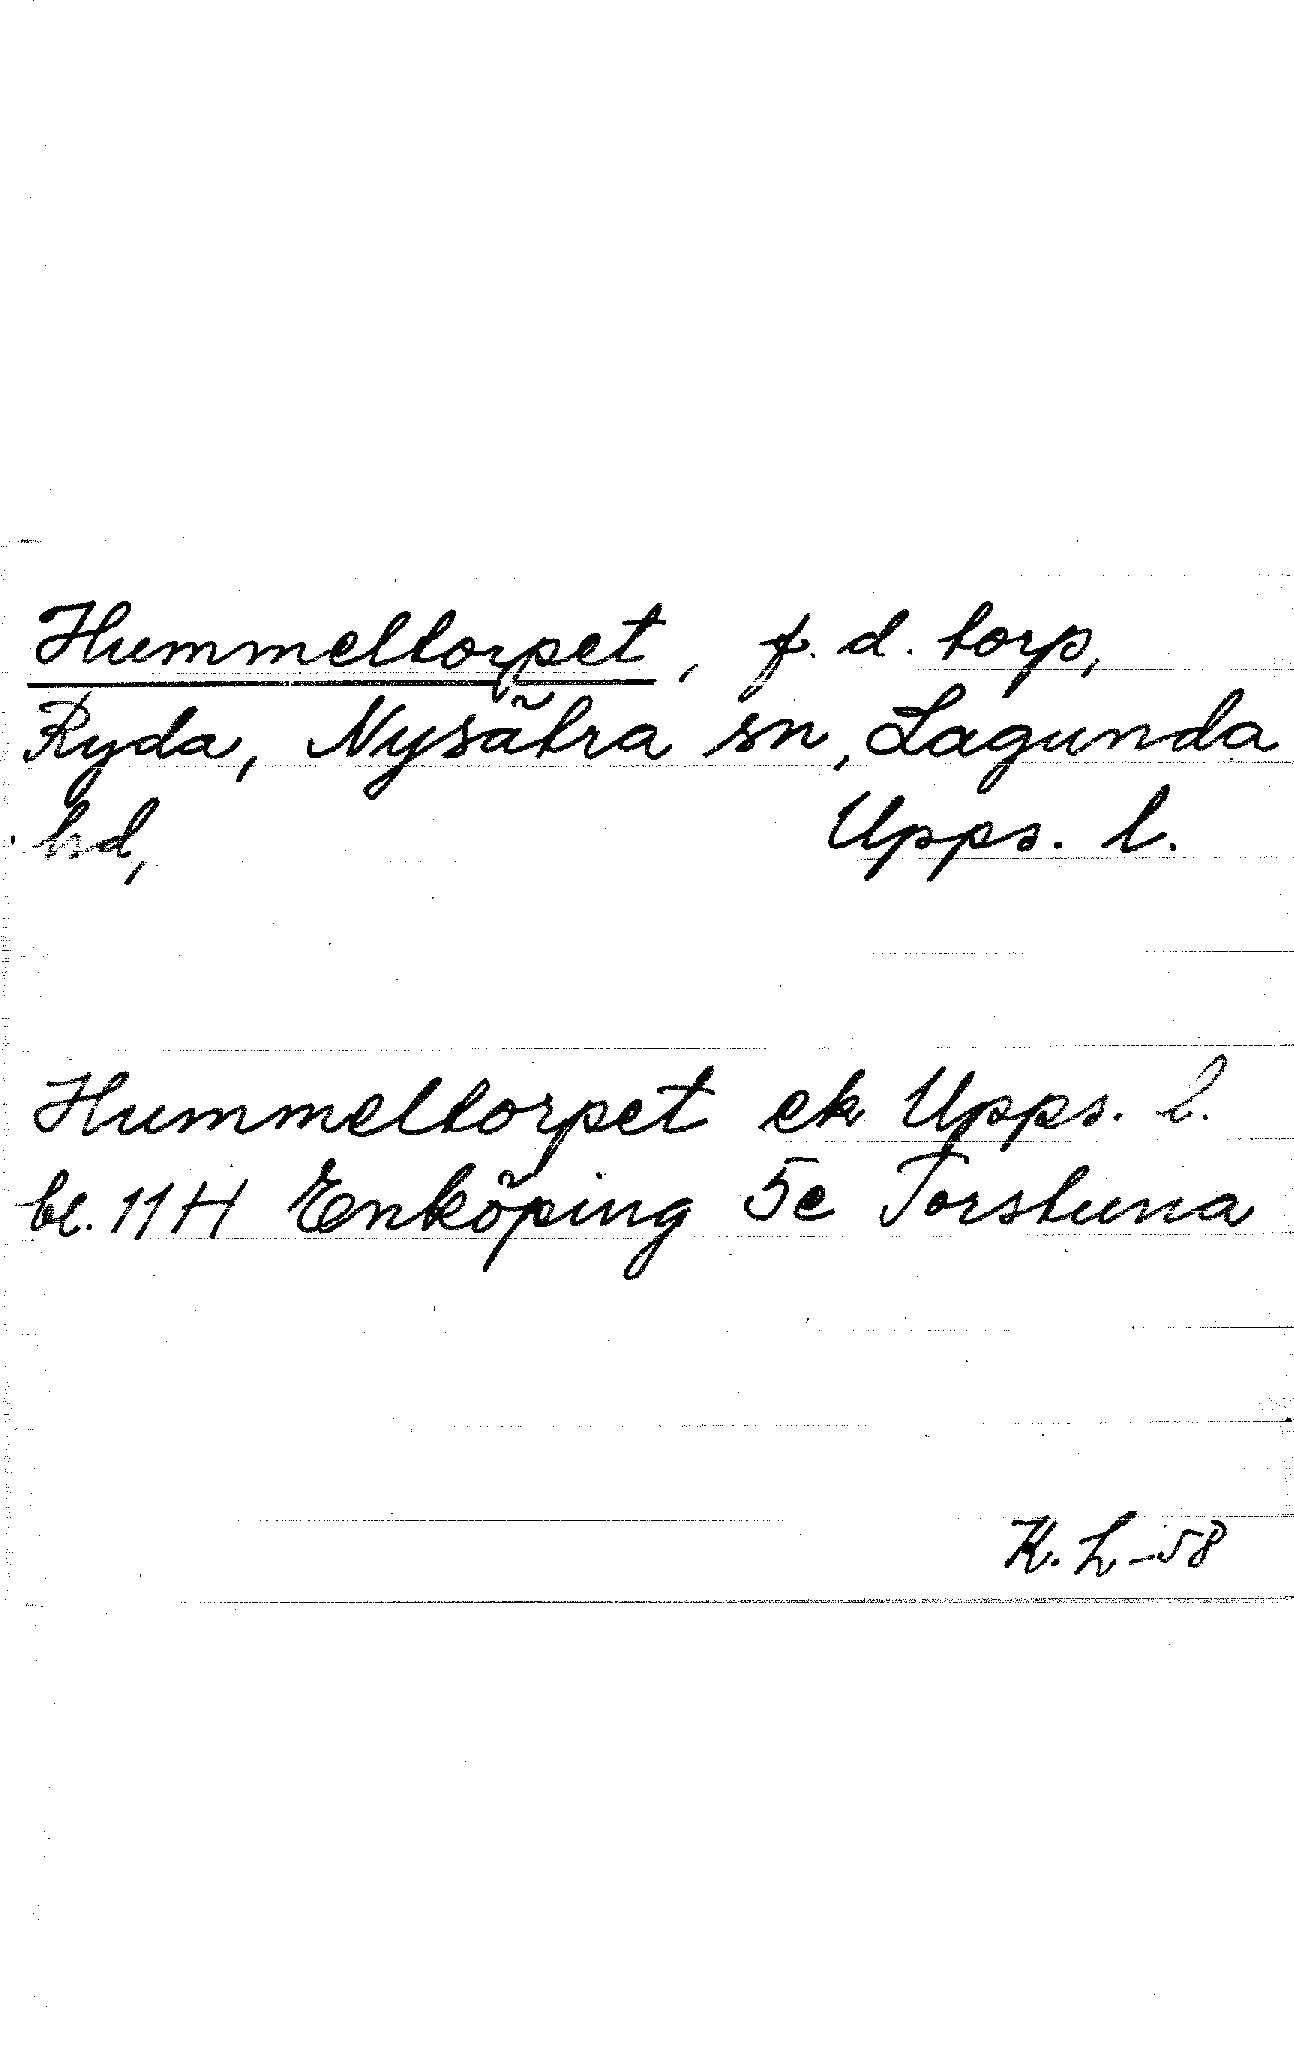 Hummeltorpet, f. d. torp,
Ryda, Nysätra sn, Lagunda
hd, Upps. l.
Hummeltorpet ek Upps. l.
bl. 11H Enköping 5e Torstuna
K. L -58